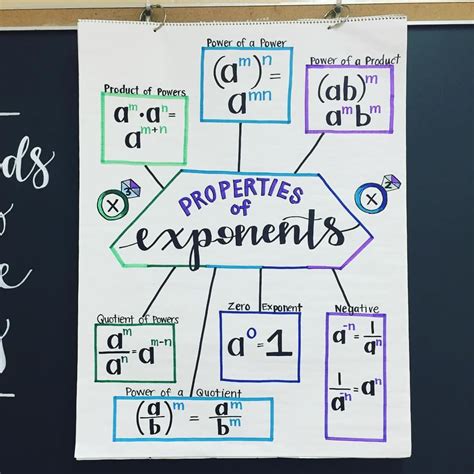 Power of a Power
(aᵐ)ⁿ =
aᵐⁿ
Power of a Product
(ab)ᵐ
aᵐbᵐ
Product of Powers
aᵐ·aⁿ=
aᵐ⁺ⁿ
PROPERTIES
of
exponents
x³
x²
Quotient of Powers
aᵐ/aⁿ = aᵐ⁻ⁿ
Zero Exponent
a⁰ = 1
Negative
a⁻ⁿ = 1/aⁿ
1/a⁻ⁿ = aⁿ
Power of a Quotient
(a/b)ᵐ = aᵐ/bᵐ